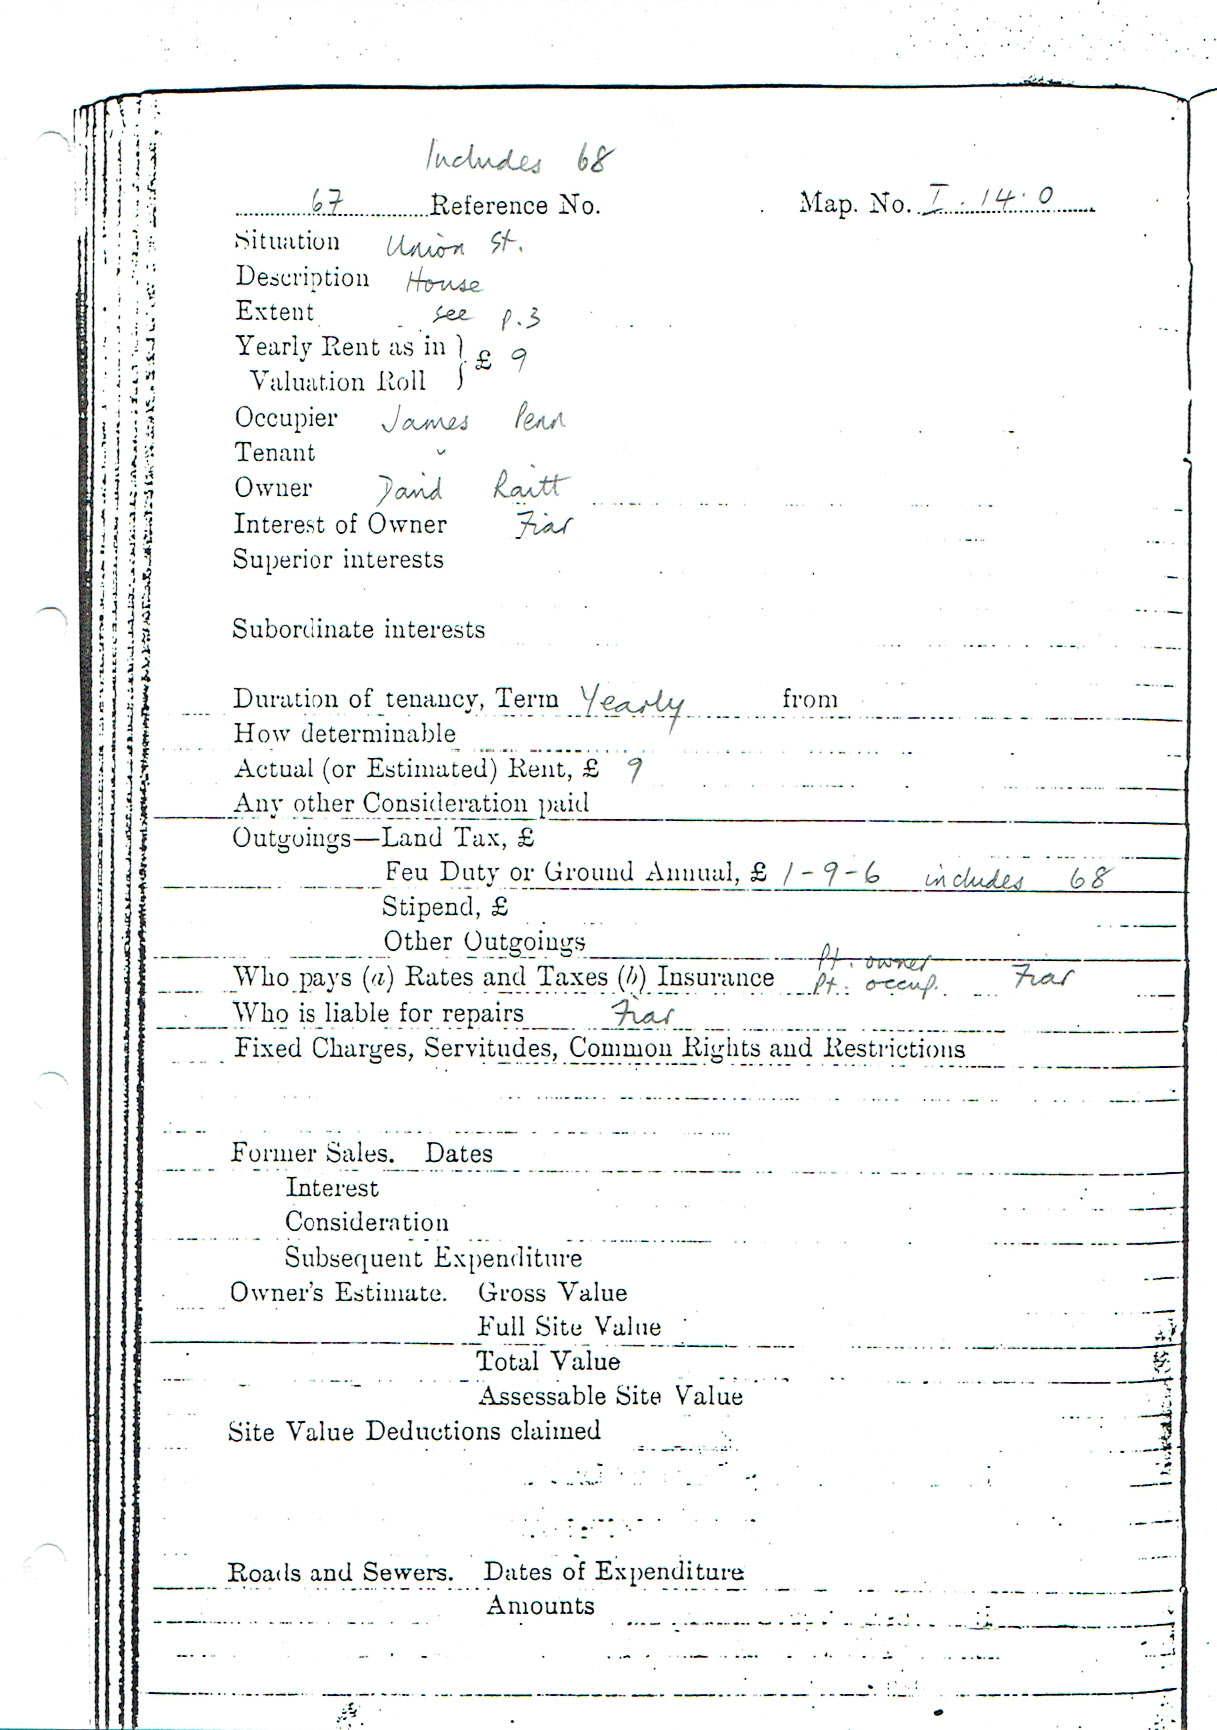 Includes 68
67 Reference No. Map. No. I. 14. 0
Situation Union St.
Description House
Extent see p.3
Yearly Rent as in } £ 9
Valuation Roll
Occupier James Penn
Tenant "
Owner David Raitt
Interest of Owner Fiar
Superior interests
Subordinate interests
Duration of tenancy, Term Yearly from
How determinable
Actual (or Estimated) Rent, £ 9
Any other Consideration paid
Outgoings—Land Tax, £
Feu Duty or Ground Annual, £ 1-9-6 includes 68
Stipend, £
Other Outgoings
Pt. owner
Who pays (a) Rates and Taxes (b) Insurance Pt. occup. Fiar
Who is liable for repairs Fiar
Fixed Charges, Servitudes, Common Rights and Restrictions
Former Sales. Dates
Interest
Consideration
Subsequent Expenditure
Owner's Estimate. Gross Value
Full Site Value
Total Value
Assessable Site Value
Site Value Deductions claimed
Roads and Sewers. Dates of Expenditure
Amounts